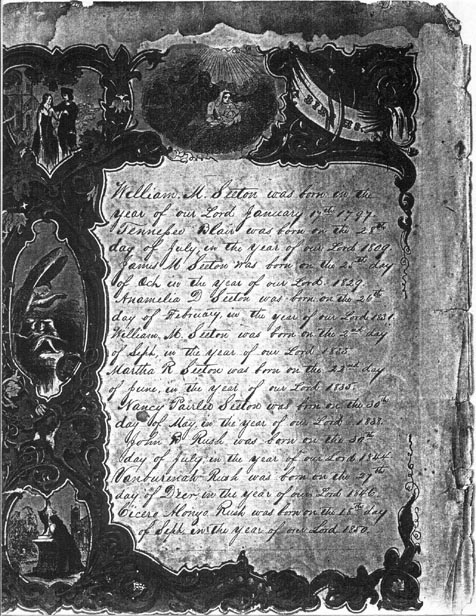 BIRTHS
William. M. Seeton was born in the
year of our Lord January 17th 1797.
Tennessee Blair was born on the 28th
day of July, in the year of our Lord 1809.
James M Seeton was born on the 20th day
of Och in the year of our Lord. 1829.
Anamelia D Seeton was born on the 26th
day of February, in the year of our Lord 1831
William. M. Seeton was born on the 2nd day
of Sept. in the year of our Lord 1833.
Martha R Seeton was born on the 22nd day
of june, in the year of our Lord 1835.
Nancy Pairlee Seeton was born on the 30th
day of May, in the year of our Lord 1838.
John Rush was born on the 30th
day of july in the year of our Lord 1844
Vanburenah Rush was born on the 27th
day of Decer, in the year of our Lord 1846.
Cicero Monza Rush was born on the 18th day
of Sept in the year of our Lord 1850.